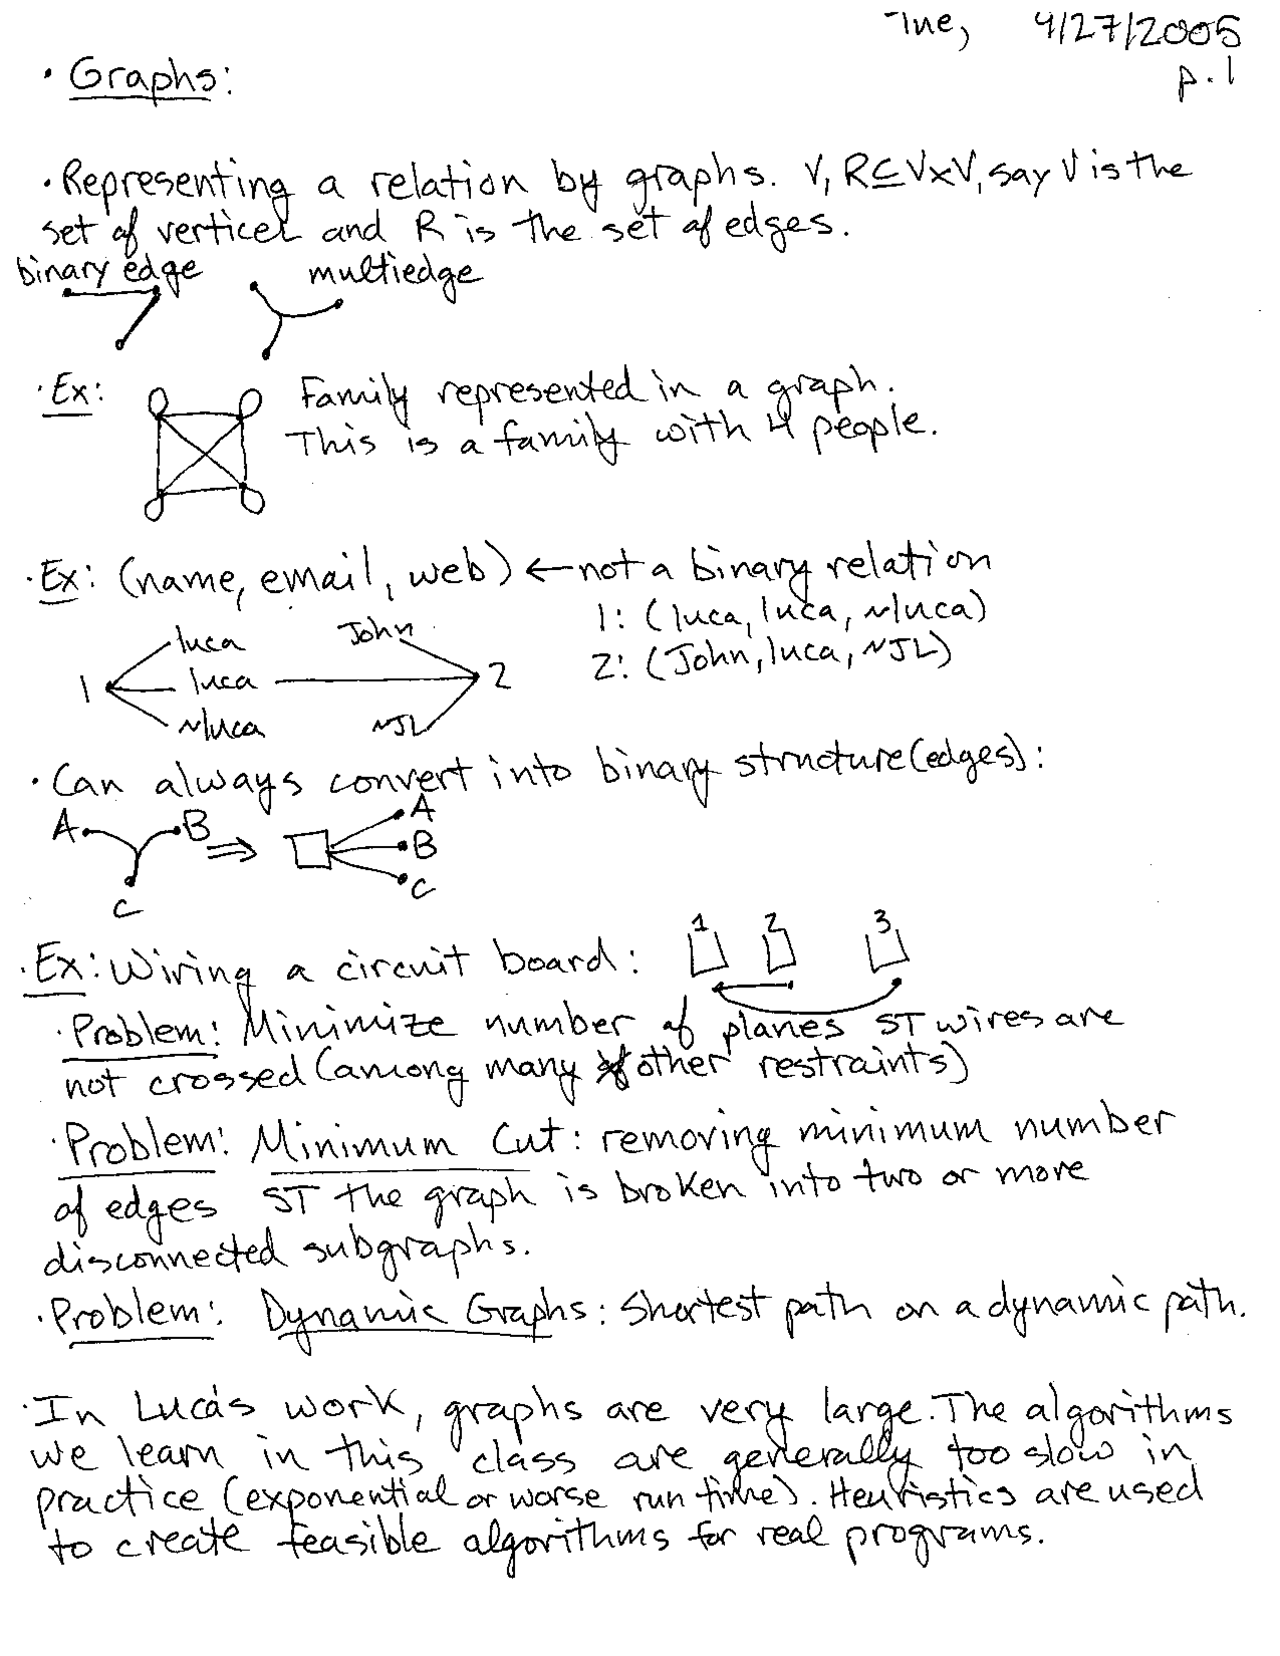 Tue, 4/27/2005
p. 1
· Graphs:
· Representing a relation by graphs. V, R⊆V×V, say V is the
set of vertices and R is the set of edges.
binary edge multiedge
· Ex: Family represented in a graph.
This is a family with 4 people.
· Ex: (name, email, web) ← not a binary relation
1: (luca, luca, ~luca)
2: (John, luca, ~JL)
luca John
1 luca 2
~luca ~JL
· Can always convert into binary structure (edges):
A B ⇒ A
B
C C
· Ex: Wiring a circuit board: 1 2 3
· Problem: Minimize number of planes ST wires are
not crossed (among many other restraints)
· Problem: Minimum Cut: removing minimum number
of edges ST the graph is broken into two or more
disconnected subgraphs.
· Problem: Dynamic Graphs: Shortest path on a dynamic path.
· In Luca's work, graphs are very large. The algorithms
we learn in this class are generally too slow in
practice (exponential or worse run time). Heuristics are used
to create feasible algorithms for real programs.